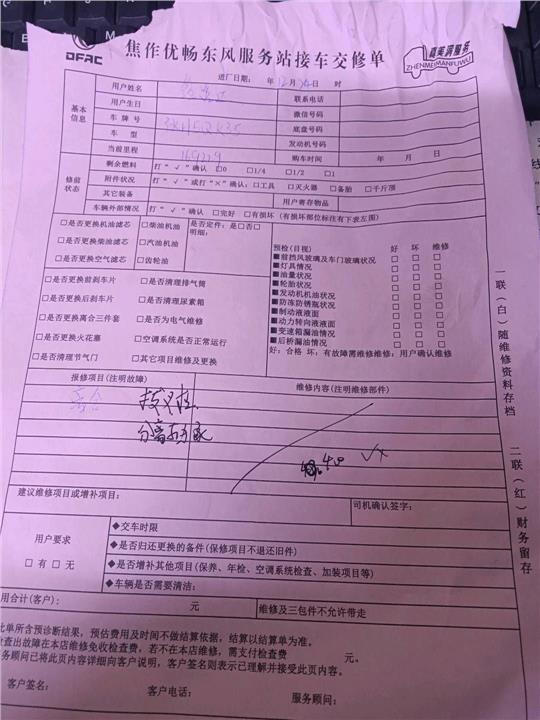 DFAC
焦作优畅东风服务站接车交修单
臻美满服务
ZHENMEIMANFUWU
进厂日期： 年 12 月 日 时
基本信息
用户姓名 联系电话
用户生日 微信号码
车 牌 号 底盘号码
车 型 发动机号
当前里程 169219 购车时间 年 月 日
修前状态
剩余燃料 打“√”确认 □0 □1/4 □1/2 □1
附件状况 打“√”或打“×”确认：□工具 □灭火器 □备胎 □千斤顶
其它装备 用户寄存物品
车辆外部情况 打“√”确认 □完好 □有损坏（有损坏部位标注有下表左图）
□是否更换机油滤芯 □柴油机油 是否定件：是□否□
□是否更换柴油滤芯 □汽油机油 明细：
□是否更换空气滤芯 □齿轮油
□是否更换前刹车片 □是否清理排气筒
□是否更换后刹车片 □是否清理尿素箱
□是否更换离合三件套 □是否为电气维修
□是否更换火花塞 □空调系统是否正常运行
□是否清理节气门 □其它项目维修及更换
预检(目视) 好 坏 维修
■前挡风玻璃及车门玻璃状况 □ □ □
■灯具情况 □ □ □
■油量状况 □ □ □
■轮胎状况 □ □ □
■发动机机油情况 □ □ □
■防冻防锈瓶状况 □ □ □
■制动液液面 □ □ □
■动力转向液液面 □ □ □
■变速箱漏油情况 □ □ □
■后桥漏油情况 □ □ □
好：合格 坏：有故障需维修维修：用户确认维修
报修项目(注明故障) 维修内容(注明维修部件)
拨叉柱
分离轴承
建议维修项目或增补项目： 司机确认签字：
用户要求
□有 □无
◆交车时限
◆是否归还更换的备件(保修项目不退还旧件)
◆是否增补其他项目(保养、年检、空调系统检查、加装项目等)
◆车辆是否需要清洁：
用合计(客户)： 元 维修及三包件不允许带走
此单所含预诊断结果，预估费用及时间不做结算依据，结算以结算单为准。
检查出故障在本店维修免收检查费，若不在本店维修，需支付检查费 元。
务顾问已将此页内容详细向客户说明，客户签名则表示已理解并接受此页内容。
客户签名： 客户电话： 服务顾问：
一联（白）随维修资料存档 二联（红）财务留存